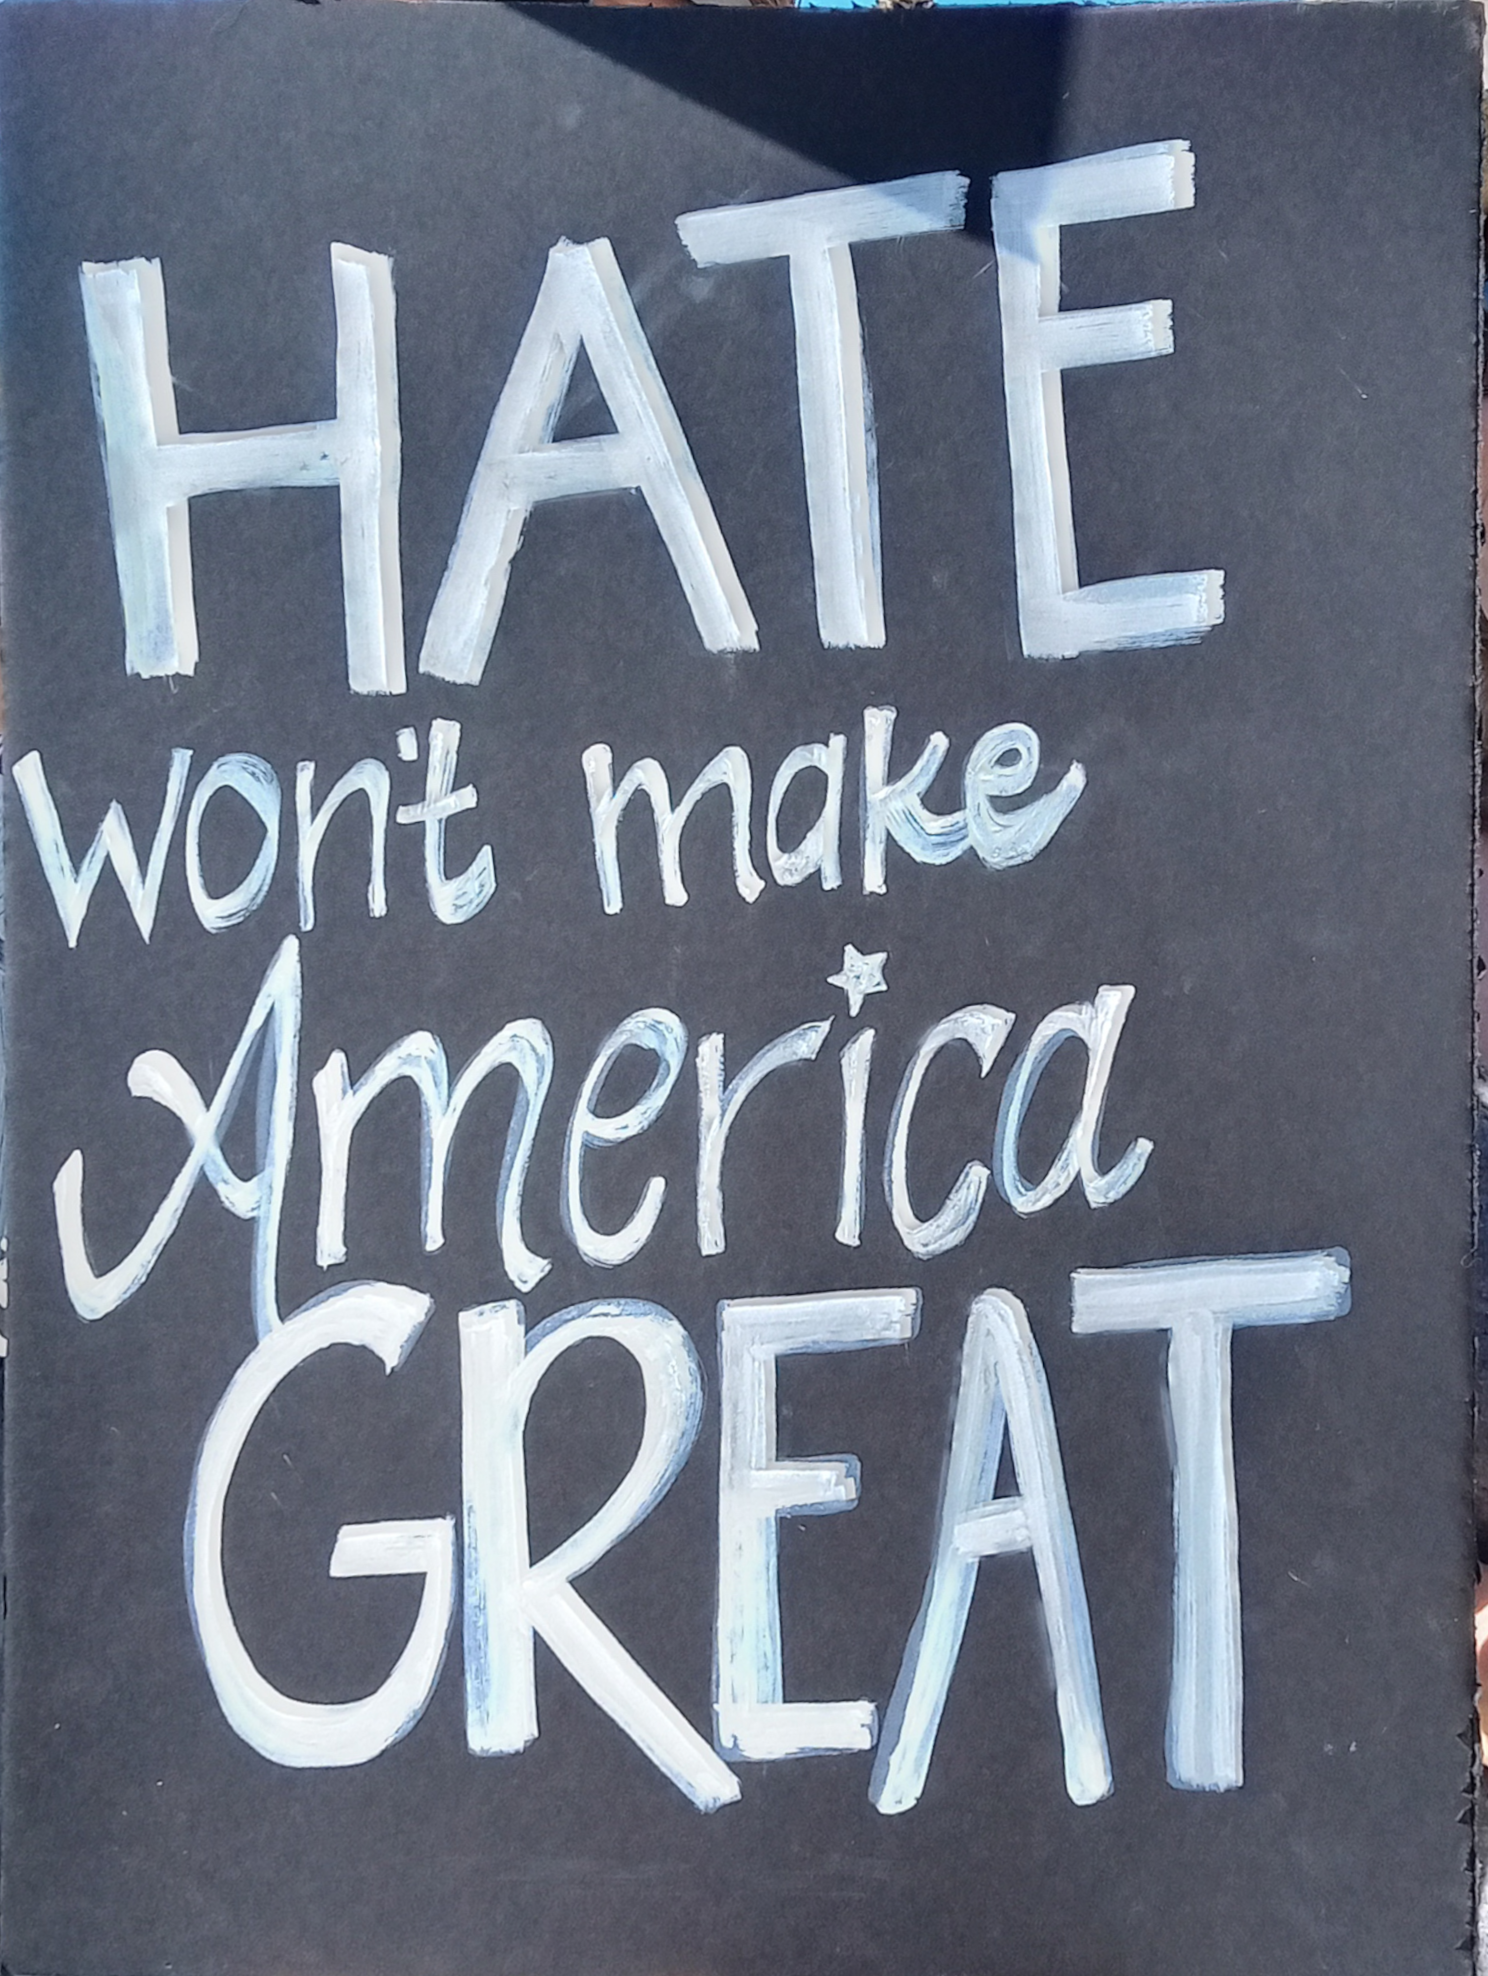 HATE
won't make
America
GREAT